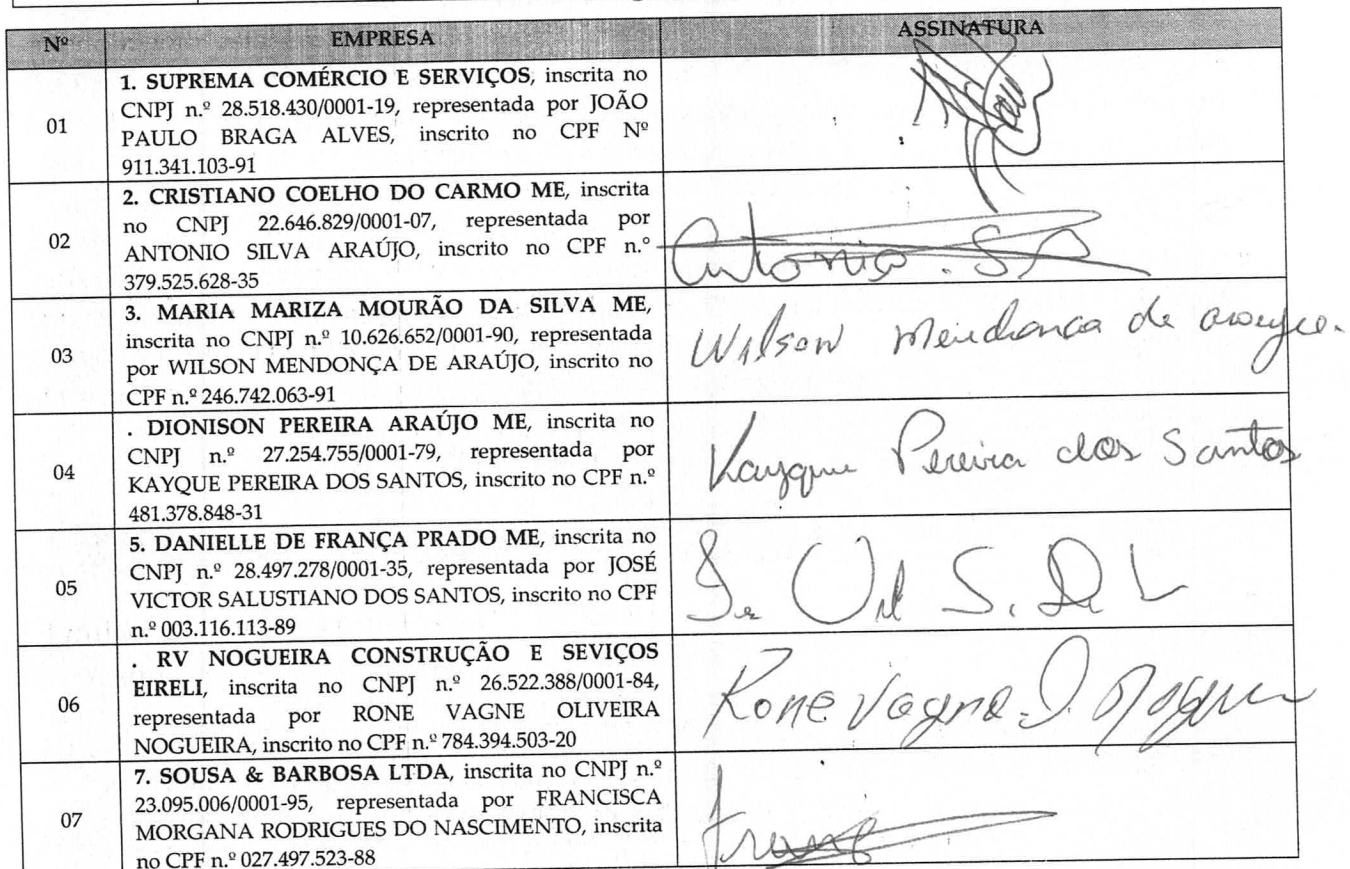 Nº EMPRESA ASSINATURA
01
1. SUPREMA COMÉRCIO E SERVIÇOS, inscrita no
CNPJ n.º 28.518.430/0001-19, representada por JOÃO
PAULO BRAGA ALVES, inscrito no CPF Nº
911.341.103-91
02
2. CRISTIANO COELHO DO CARMO ME, inscrita
no CNPJ 22.646.829/0001-07, representada por
ANTONIO SILVA ARAÚJO, inscrito no CPF n.°
379.525.628-35
Antonio. S A
03
3. MARIA MARIZA MOURÃO DA SILVA ME,
inscrita no CNPJ n.º 10.626.652/0001-90, representada
por WILSON MENDONÇA DE ARAÚJO, inscrito no
CPF n.º 246.742.063-91
Wilson Mendonca de araujo.
04
. DIONISON PEREIRA ARAÚJO ME, inscrita no
CNPJ n.º 27.254.755/0001-79, representada por
KAYQUE PEREIRA DOS SANTOS, inscrito no CPF n.º
481.378.848-31
Kayque Pereira dos Santos
05
5. DANIELLE DE FRANÇA PRADO ME, inscrita no
CNPJ n.º 28.497.278/0001-35, representada por JOSÉ
VICTOR SALUSTIANO DOS SANTOS, inscrito no CPF
n.º 003.116.113-89
06
. RV NOGUEIRA CONSTRUÇÃO E SEVIÇOS
EIRELI, inscrita no CNPJ n.º 26.522.388/0001-84,
representada por RONE VAGNE OLIVEIRA
NOGUEIRA, inscrito no CPF n.º 784.394.503-20
Rone Vagne
07
7. SOUSA & BARBOSA LTDA, inscrita no CNPJ n.º
23.095.006/0001-95, representada por FRANCISCA
MORGANA RODRIGUES DO NASCIMENTO, inscrita
no CPF n.º 027.497.523-88